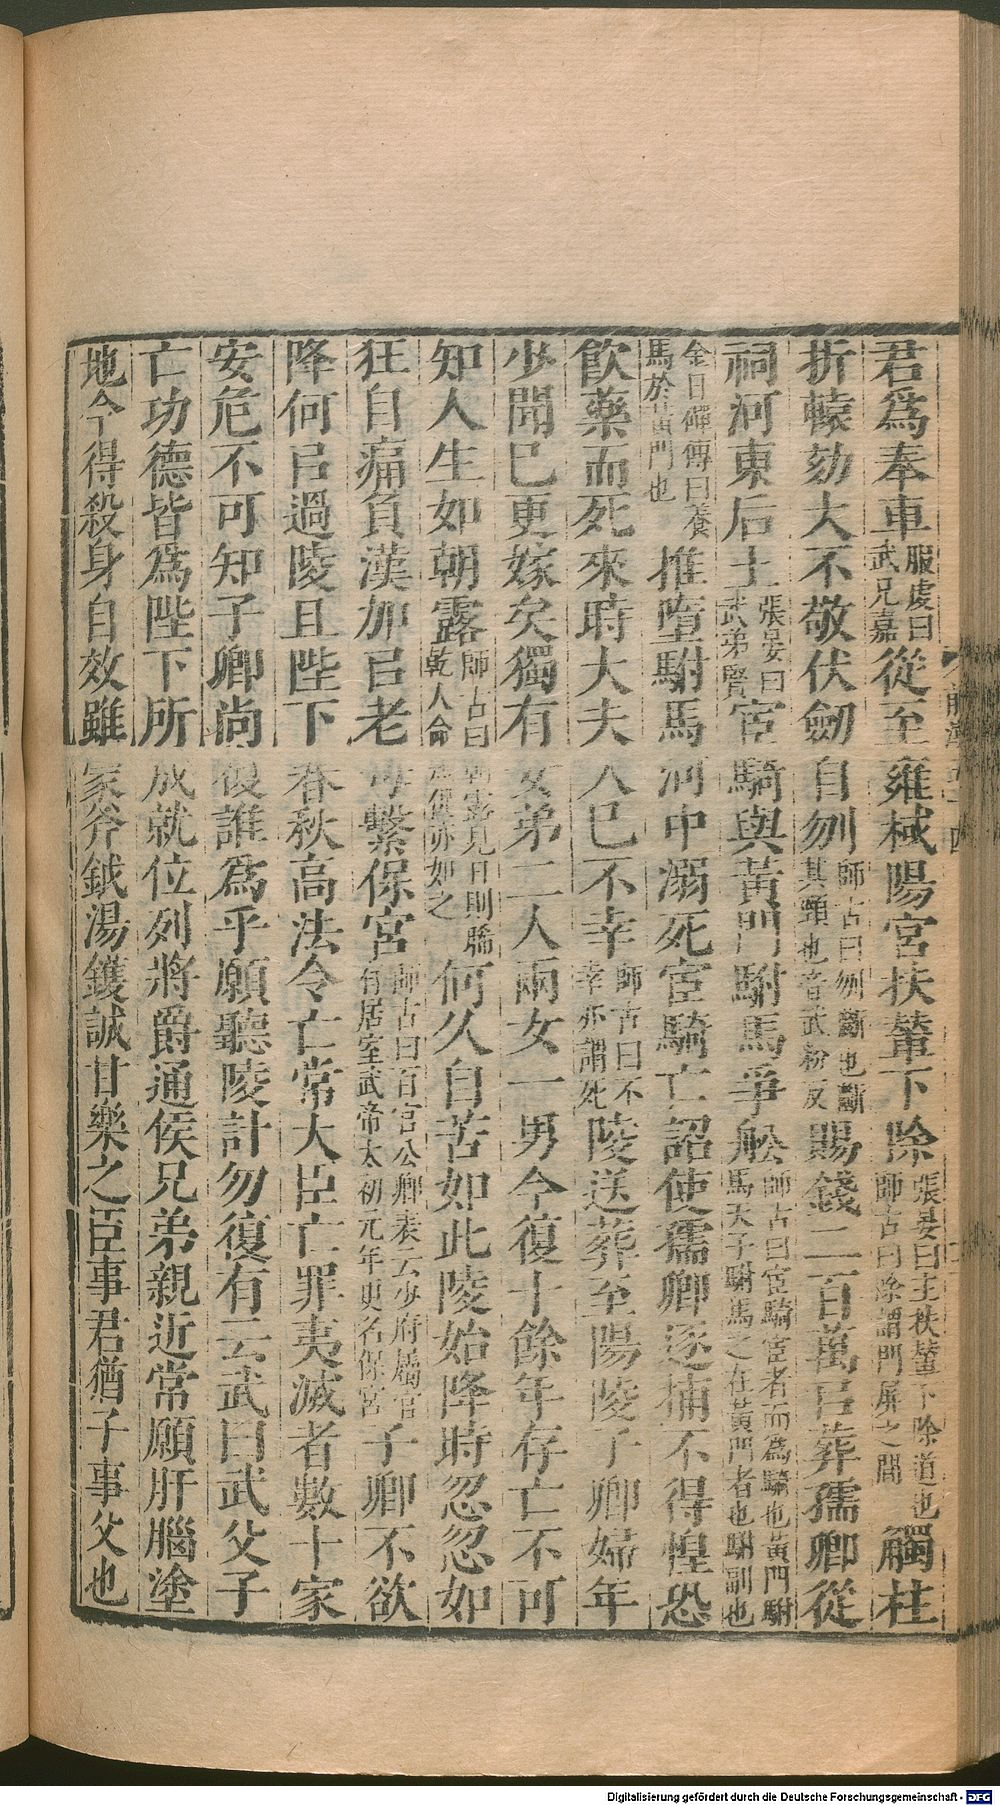 君為奉車服虔曰武兄嘉從至雍棫陽宮扶輦下除張晏曰主扶輦下除道也師古曰除謂門屏之間觸柱
折轅劾大不敬伏劔自刎師古曰刎斷也斷其頸也音武粉反賜錢二百萬㠯葬孺卿從
祠河東后土張晏曰武弟賢宦騎與黃門駙馬爭舩師古曰宦騎宦者而為騎也黃門駙馬天子駙馬之在黃門者也駙副也
金日磾傳曰養馬於黃門也推墮駙馬河中溺死宦騎亡詔使孺卿逐捕不得惶恐
飲藥而死來時大夫人已不幸師古曰不幸亦謂死陵送葬至陽陵子卿婦年
少聞已更嫁矣獨有女弟二人兩女一男今復十餘年存亡不可
知人生如朝露師古曰朝露見日則晞乾人命短促亦如之何久自苦如此陵始降時忽忽如
狂自痛負漢加㠯老母繫保宮師古曰百官公卿表云少府屬官有居室武帝太初元年更名保宮子卿不欲
降何㠯過陵且陛下春秋高法令亡常大臣亡罪夷滅者數十家
安危不可知子卿尚復誰為乎願聽陵計勿復有云武曰武父子
亡功德皆為陛下所成就位列將爵通侯兄弟親近常願肝腦塗
地今得殺身自效雖蒙斧鉞湯鑊誠甘樂之臣事君猶子事父也
Digitalisierung gefördert durch die Deutsche Forschungsgemeinschaft - DFG